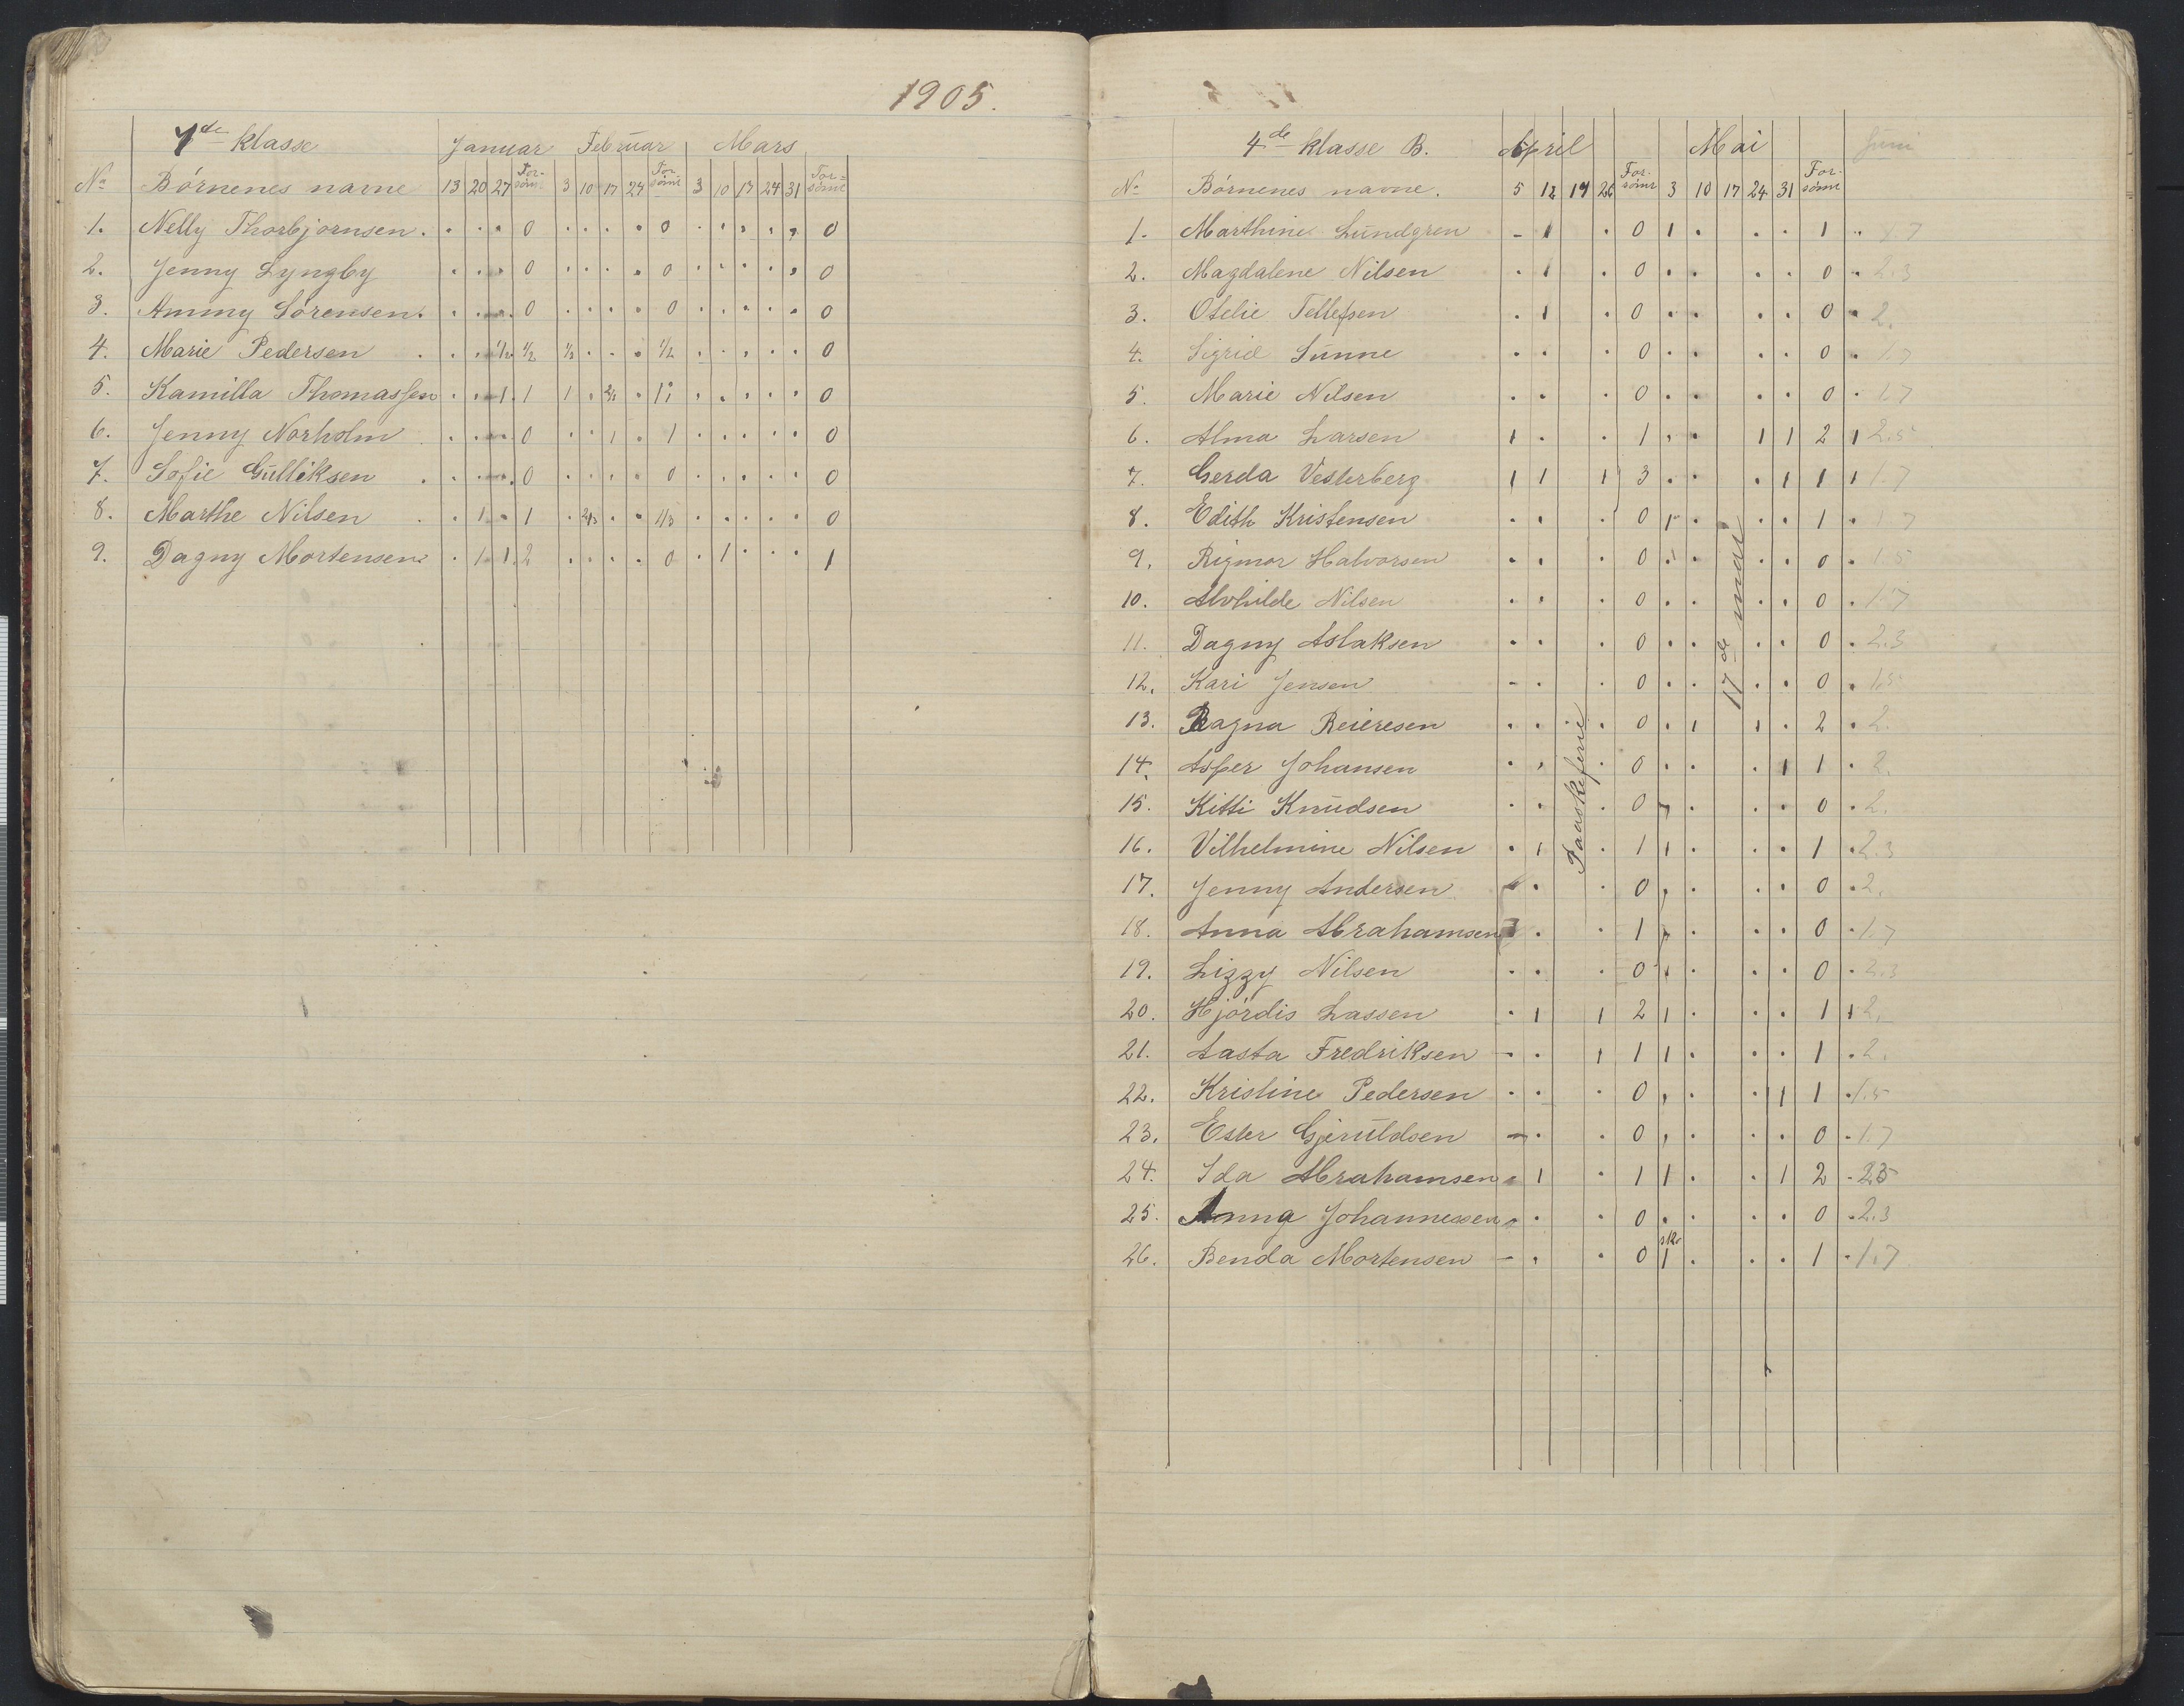 1905.
7de klasse Januar Februar Mars
No Børnenes navne 13 20 27 For-søm. 3 10 17 24 For-sømt 3 10 17 24 31 For-sømt
1. Nelly Thorbjørnsen . . . . 0 . . . . 0 . . . . . 0
2. Jenny Lyngby . . . 0 . . . . 0 . . . . . 0
3. Ammy Sørensen . . . 0 . . . . 0 . . . . . 0
4. Marie Pedersen . . . 1/2 1/2 1/2 . . . 1/2 . . . . . 0
5. Kamilla Thomassen . . 1 1 1 . . . . . . . 0
6. Jenny Norholm . . . 0 . . 1 . 1 . . . . . 0
7. Sofie Gulliksen . . . . 0 . . . . 0 . . . . . 0
8. Marthe Nilsen . 1 . 1 . 2/3 . . 1/3 . . . . . 0
9. Dagny Mortensen . 1 1 2 . . . . 0 . 1 . . . 1
4de klasse B. April Mai Juni
No Børnenes navne. 5 12 19 26 For-sømt 3 10 17 24 31 For-sømt
1. Marthine Lundgren - 1 . 0 1 . . . 1 . 1.7
2. Magdalene Nilsen . 1 . 0 . . . . 0 . 2.3
3. Otelie Tellefsen . 1 . 0 . . . . 0 . 2.
4. Sigrid Sunne . . . 0 . . . . 0 . 1.7
5. Marie Nilsen . . . 0 . . . . 0 . 1.7
6. Alma Larsen 1 . . 1 . . 1 1 2 1 2.5
7. Gerda Vesterberg 1 1 1 3 . . . 1 1 1 1.7
8. Edith Kristensen . . . 0 1 . . . 1 . 1.7
9. Rigmor Halvorsen . . . 0 . . . . 0 . 1.5
10. Alvhilde Nilsen . . . 0 . . . . 0 . 1.7
11. Dagny Aslaksen . . . 0 . . . . 0 . 2.3
12. Kari Jensen - . . 0 . . . . 0 . 1.5
13. Ragna Reieresen . . . 0 . 1 1 . 2 . 2.
14. Asper Johansen . . . 0 . . . 1 1 . 2.
15. Kitti Knudsen . . . 0 . . . . 0 . 2.
16. Vilhelmine Nilsen . 1 . 1 1 . . . 1 . 2.3
17. Jenny Andersen . . 0 . . . . 0 . 2.
18. Anna Abrahamsen . . 1 . . . . 0 . 1.7
19. Lizzy Nilsen . . . 0 . . . . 0 . 2.3
20. Hjørdis Lassen . 1 1 2 1 . . . 1 1 2.
21. Aasta Fredriksen - . 1 1 1 . . . 1 . 2.
22. Kristine Pedersen . . . 0 . . . 1 1 . 1.5
23. Ester Gjeruldsen - . . 0 . . . . 0 . 1.7
24. Ida Abrahamsen . 1 . 1 1 . . 1 2 -
25. Anna Johannessen . . . 0 . . . . 0 . 2.3
26. Benda Mortensen - . . 0 1 . . . 1 . 1.7
skr
Paaskeferie
17de mai